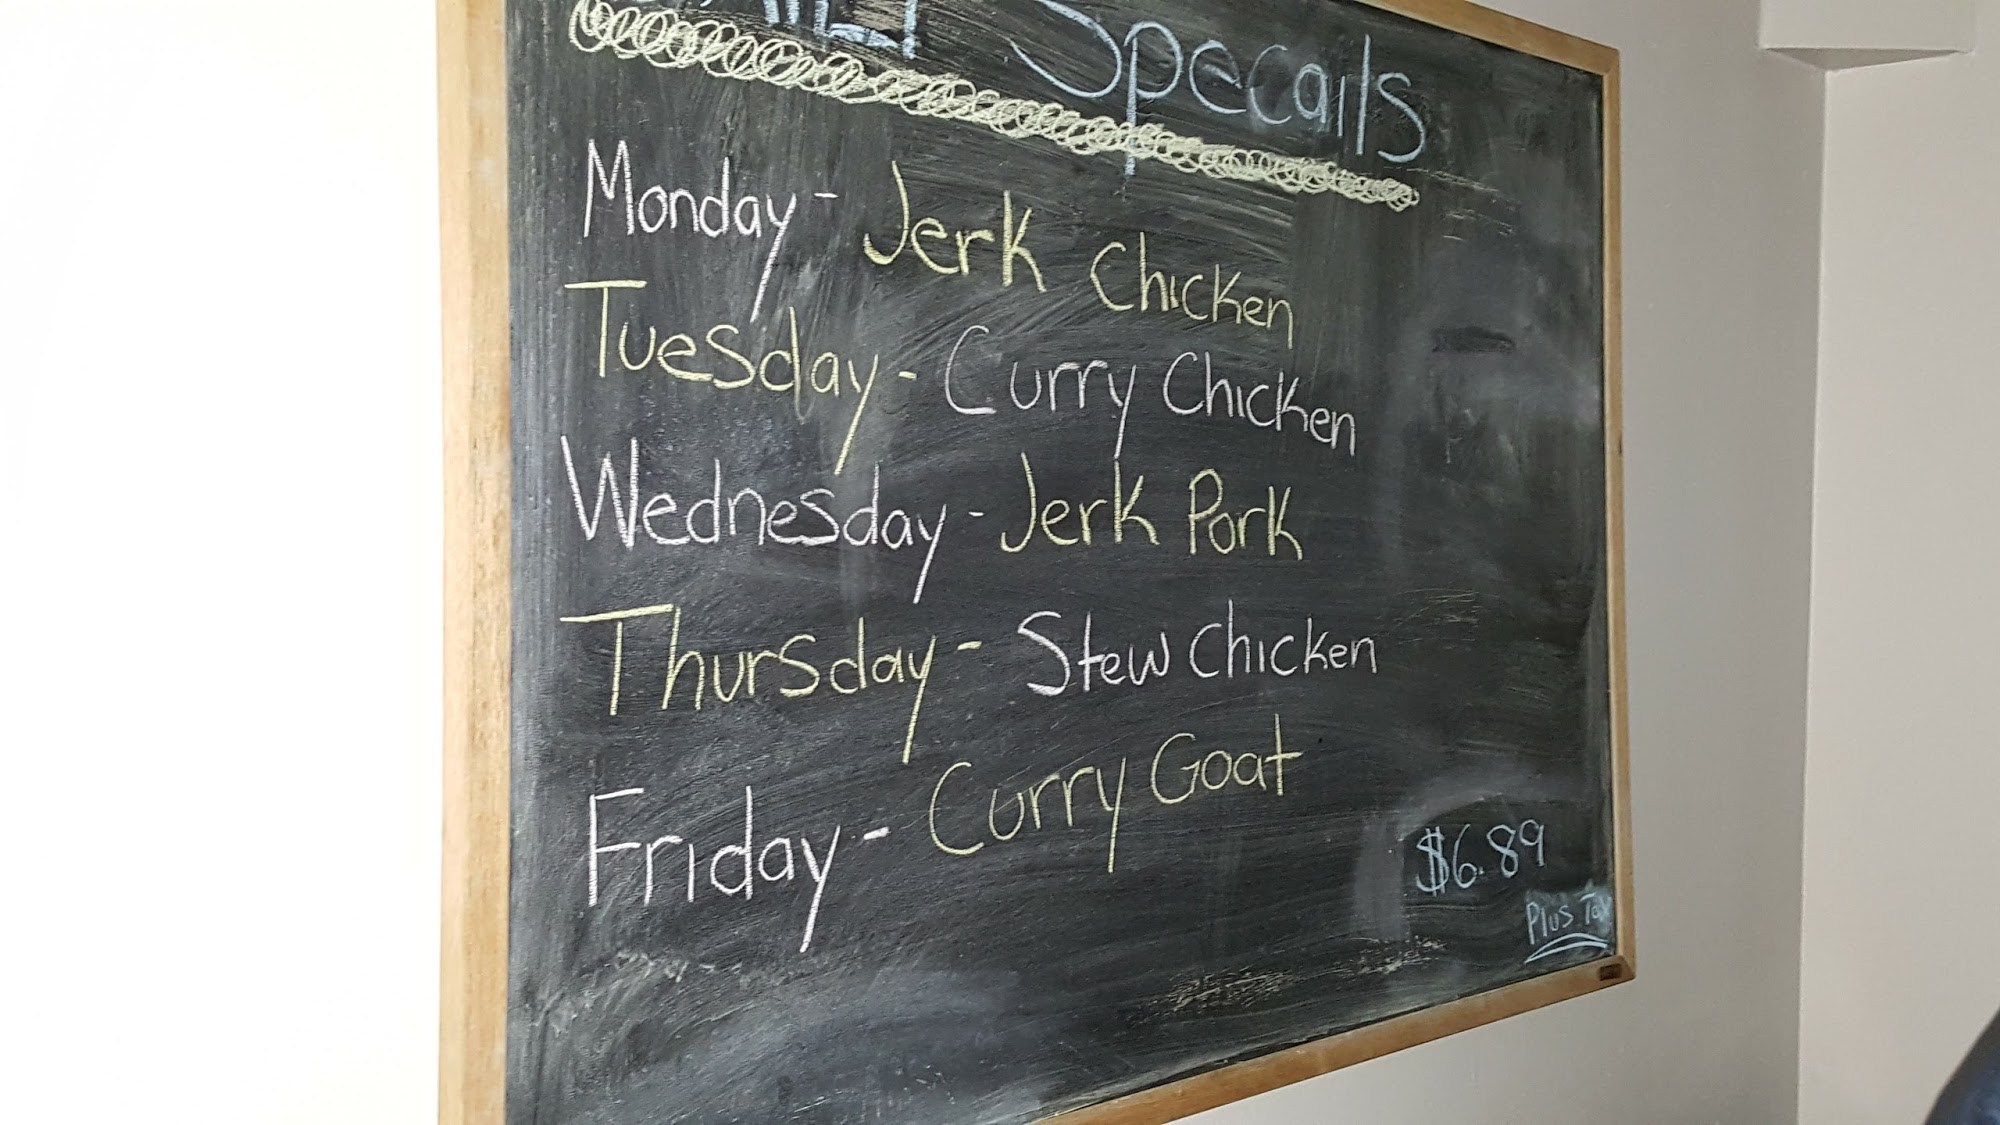 DAILY Specails
Monday - Jerk Chicken
Tuesday - Curry Chicken
Wednesday - Jerk Pork
Thursday - Stew Chicken
Friday - Curry Goat
$6.89
Plus Tax